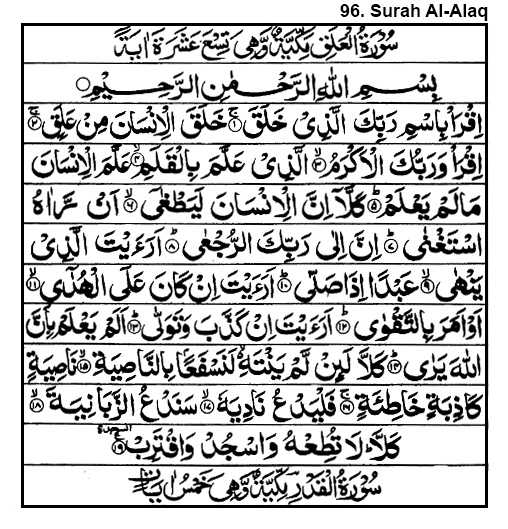 96. Surah Al-Alaq
سُوْرَةُ الْعَلَقِ مَكِّيَّةٌ وَّهِىَ تِسْعَ عَشَرَةَ اٰيَةً
بِسْمِ اللهِ الرَّحْمٰنِ الرَّحِيْمِ
اِقْرَاْ بِاسْمِ رَبِّكَ الَّذِىْ خَلَقَ ۚ﴿۱﴾ خَلَقَ الْاِنْسَانَ مِنْ عَلَقٍ ۚ﴿۲﴾
اِقْرَاْ وَرَبُّكَ الْاَكْرَمُ ۙ﴿۳﴾ الَّذِىْ عَلَّمَ بِالْقَلَمِ ۙ﴿۴﴾ عَلَّمَ الْاِنْسَانَ
مَا لَمْ يَعْلَمْ ؕ﴿۵﴾ كَلَّاۤ اِنَّ الْاِنْسَانَ لَيَطْغٰٓى ۙ﴿۶﴾ اَنْ رَّاٰهُ
اسْتَغْنٰى ؕ﴿۷﴾ اِنَّ اِلٰى رَبِّكَ الرُّجْعٰى ؕ﴿۸﴾ اَرَءَيْتَ الَّذِىْ
يَنْهٰى ۙ﴿۹﴾ عَبْدًا اِذَا صَلّٰى ؕ﴿۱۰﴾ اَرَءَيْتَ اِنْ كَانَ عَلَى الْهُدٰٓى ۙ﴿۱۱﴾
اَوْ اَمَرَ بِالتَّقْوٰى ؕ﴿۱۲﴾ اَرَءَيْتَ اِنْ كَذَّبَ وَتَوَلّٰى ؕ﴿۱۳﴾ اَلَمْ يَعْلَمْ بِاَنَّ
اللهَ يَرٰى ؕ﴿۱۴﴾ كَلَّا لَئِنْ لَّمْ يَنْتَهِ ۙ لَنَسْفَعًۢا بِالنَّاصِيَةِ ۙ﴿۱۵﴾ نَاصِيَةٍ
كَاذِبَةٍ خَاطِئَةٍ ۚ﴿۱۶﴾ فَلْيَدْعُ نَادِيَهٗ ۙ﴿۱۷﴾ سَنَدْعُ الزَّبَانِيَةَ ۙ﴿۱۸﴾
كَلَّا ؕ لَا تُطِعْهُ وَاسْجُدْ وَاقْتَرِبْ ﴿۱۹﴾ السجدة
سُوْرَةُ الْقَدْرِ مَكِّيَّةٌ وَّهِىَ خَمْسُ اٰيَاتٍ